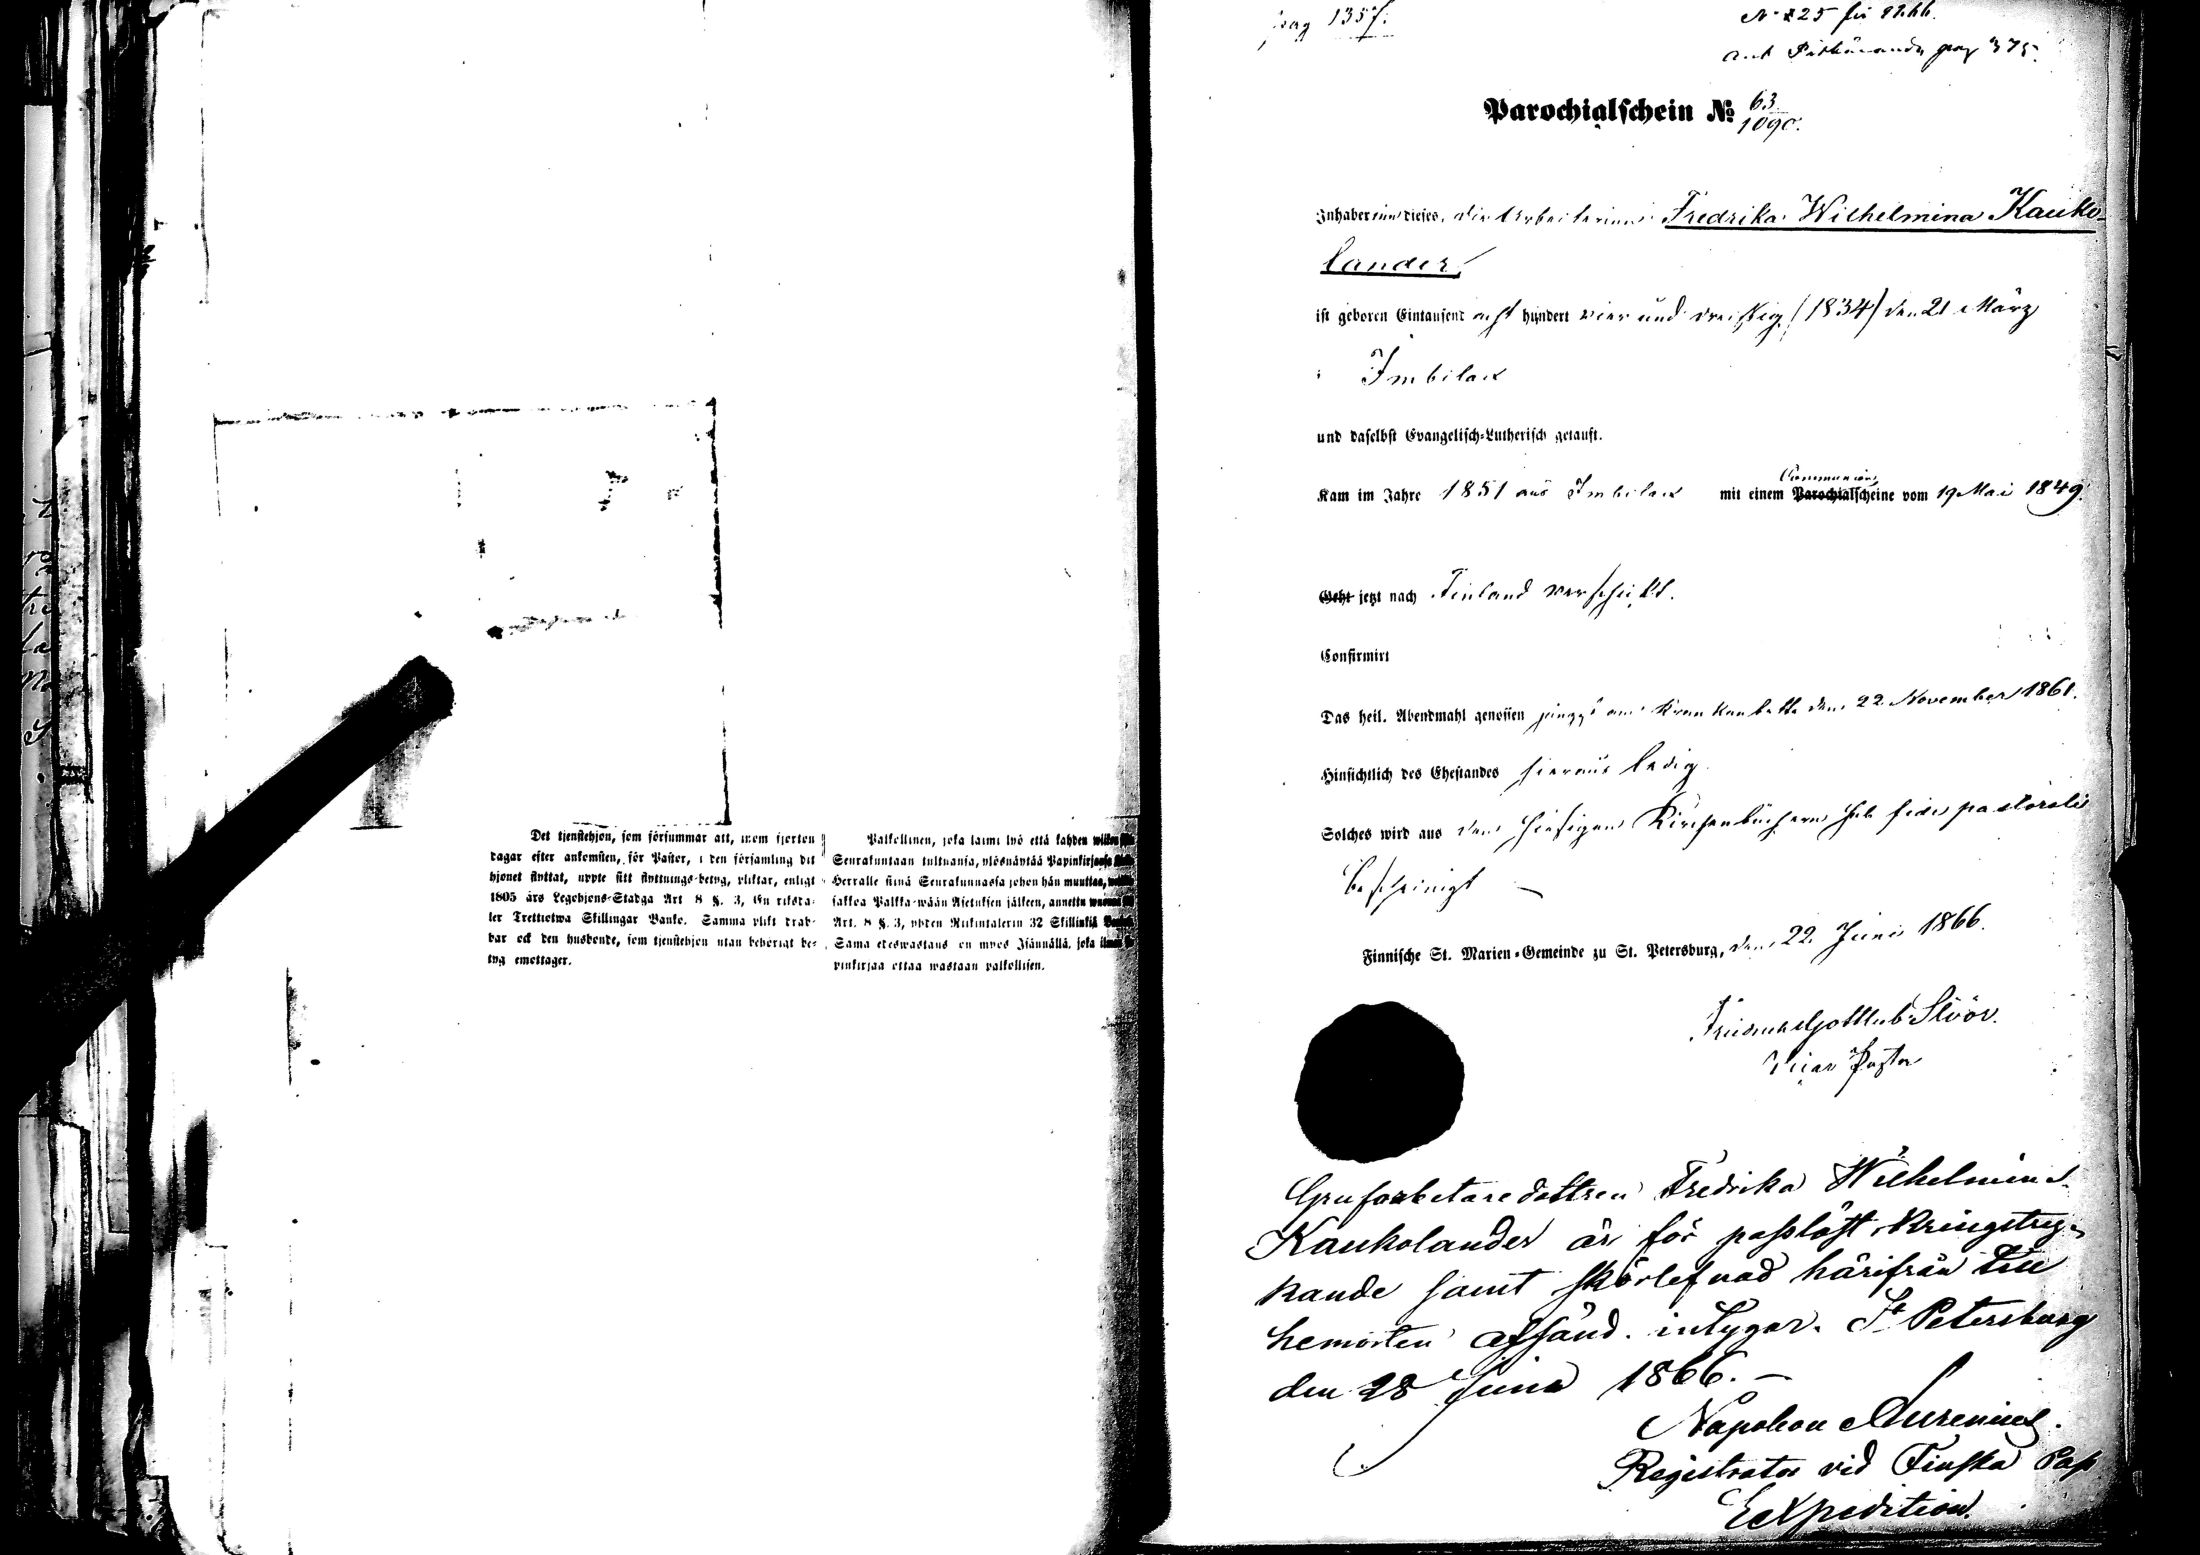 Det tjenstehjon, som försummar att, inom fjorton
dagar efter ankomsten, för Pastor, i den församling dit
hjonet flyttat, uppte sitt flyttnings-betyg, pliktar, enligt
1805 års Legohjons-Stadga Art 8 §. 3, En riksda-
ler Trettiotwa Skillingar Banko. Samma plikt drab-
bar ock den husbonde, som tjenstehjon utan behörigt be-
tyg emottager.
Palkollinen, joka laimi lyö että kahden wiikon
Seurakuntaan tultuansa, ylösnäyttää Papinkirjansa
Herralle siinä Seurakunnassa johon hän muuttaa,
sakkoa Palkka-wään Asetuksen jälkeen, annettu wuonna
Art. 8 §. 3, yhden Riikintalerin 32 Skillinkiä Banko
Sama edeswastaus on myös Isännällä, joka ilman
pinkirjaa ottaa wastaan palkollisen.
pag 1357.
Parochialschein № 63/1090.
Inhaberinn dieses, die Arbeiterinn Fredrika Wilhelmina Kauko-
lander,
ist geboren Eintausend acht hundert vier und dreissig (1834) den 21 März
Imbilax
und daselbst Evangelisch-Lutherisch getauft.
Communions
Kam im Jahre 1851 aus Imbilax mit einem Parochialscheine vom 19 Mai 1849.
Geht jetzt nach Finland verschickt.
Confirmirt
Das heil. Abendmahl genossen jüngst am Krankenbette den 22 November 1861.
Hinsichtlich des Ehestandes hieraus ledig
Solches wird aus den hiesigen Kirchenbüchern sub fide pastorali
bescheinigt
Finnische St. Marien-Gemeinde zu St. Petersburg, den 22 Juni 1866.
Gottlieb Slöör.
Vicar Pastor
Grufarbetaredottren Fredrika Wilhelmina
Kaukolander är för passlöst kringstry-
kande samt skörlefnad härifrån till
hemorten afsänd. intygar. St Petersburg
den 28 Juni 1866. —
Napoleon
Registrator vid Finska Pass
Expedition.